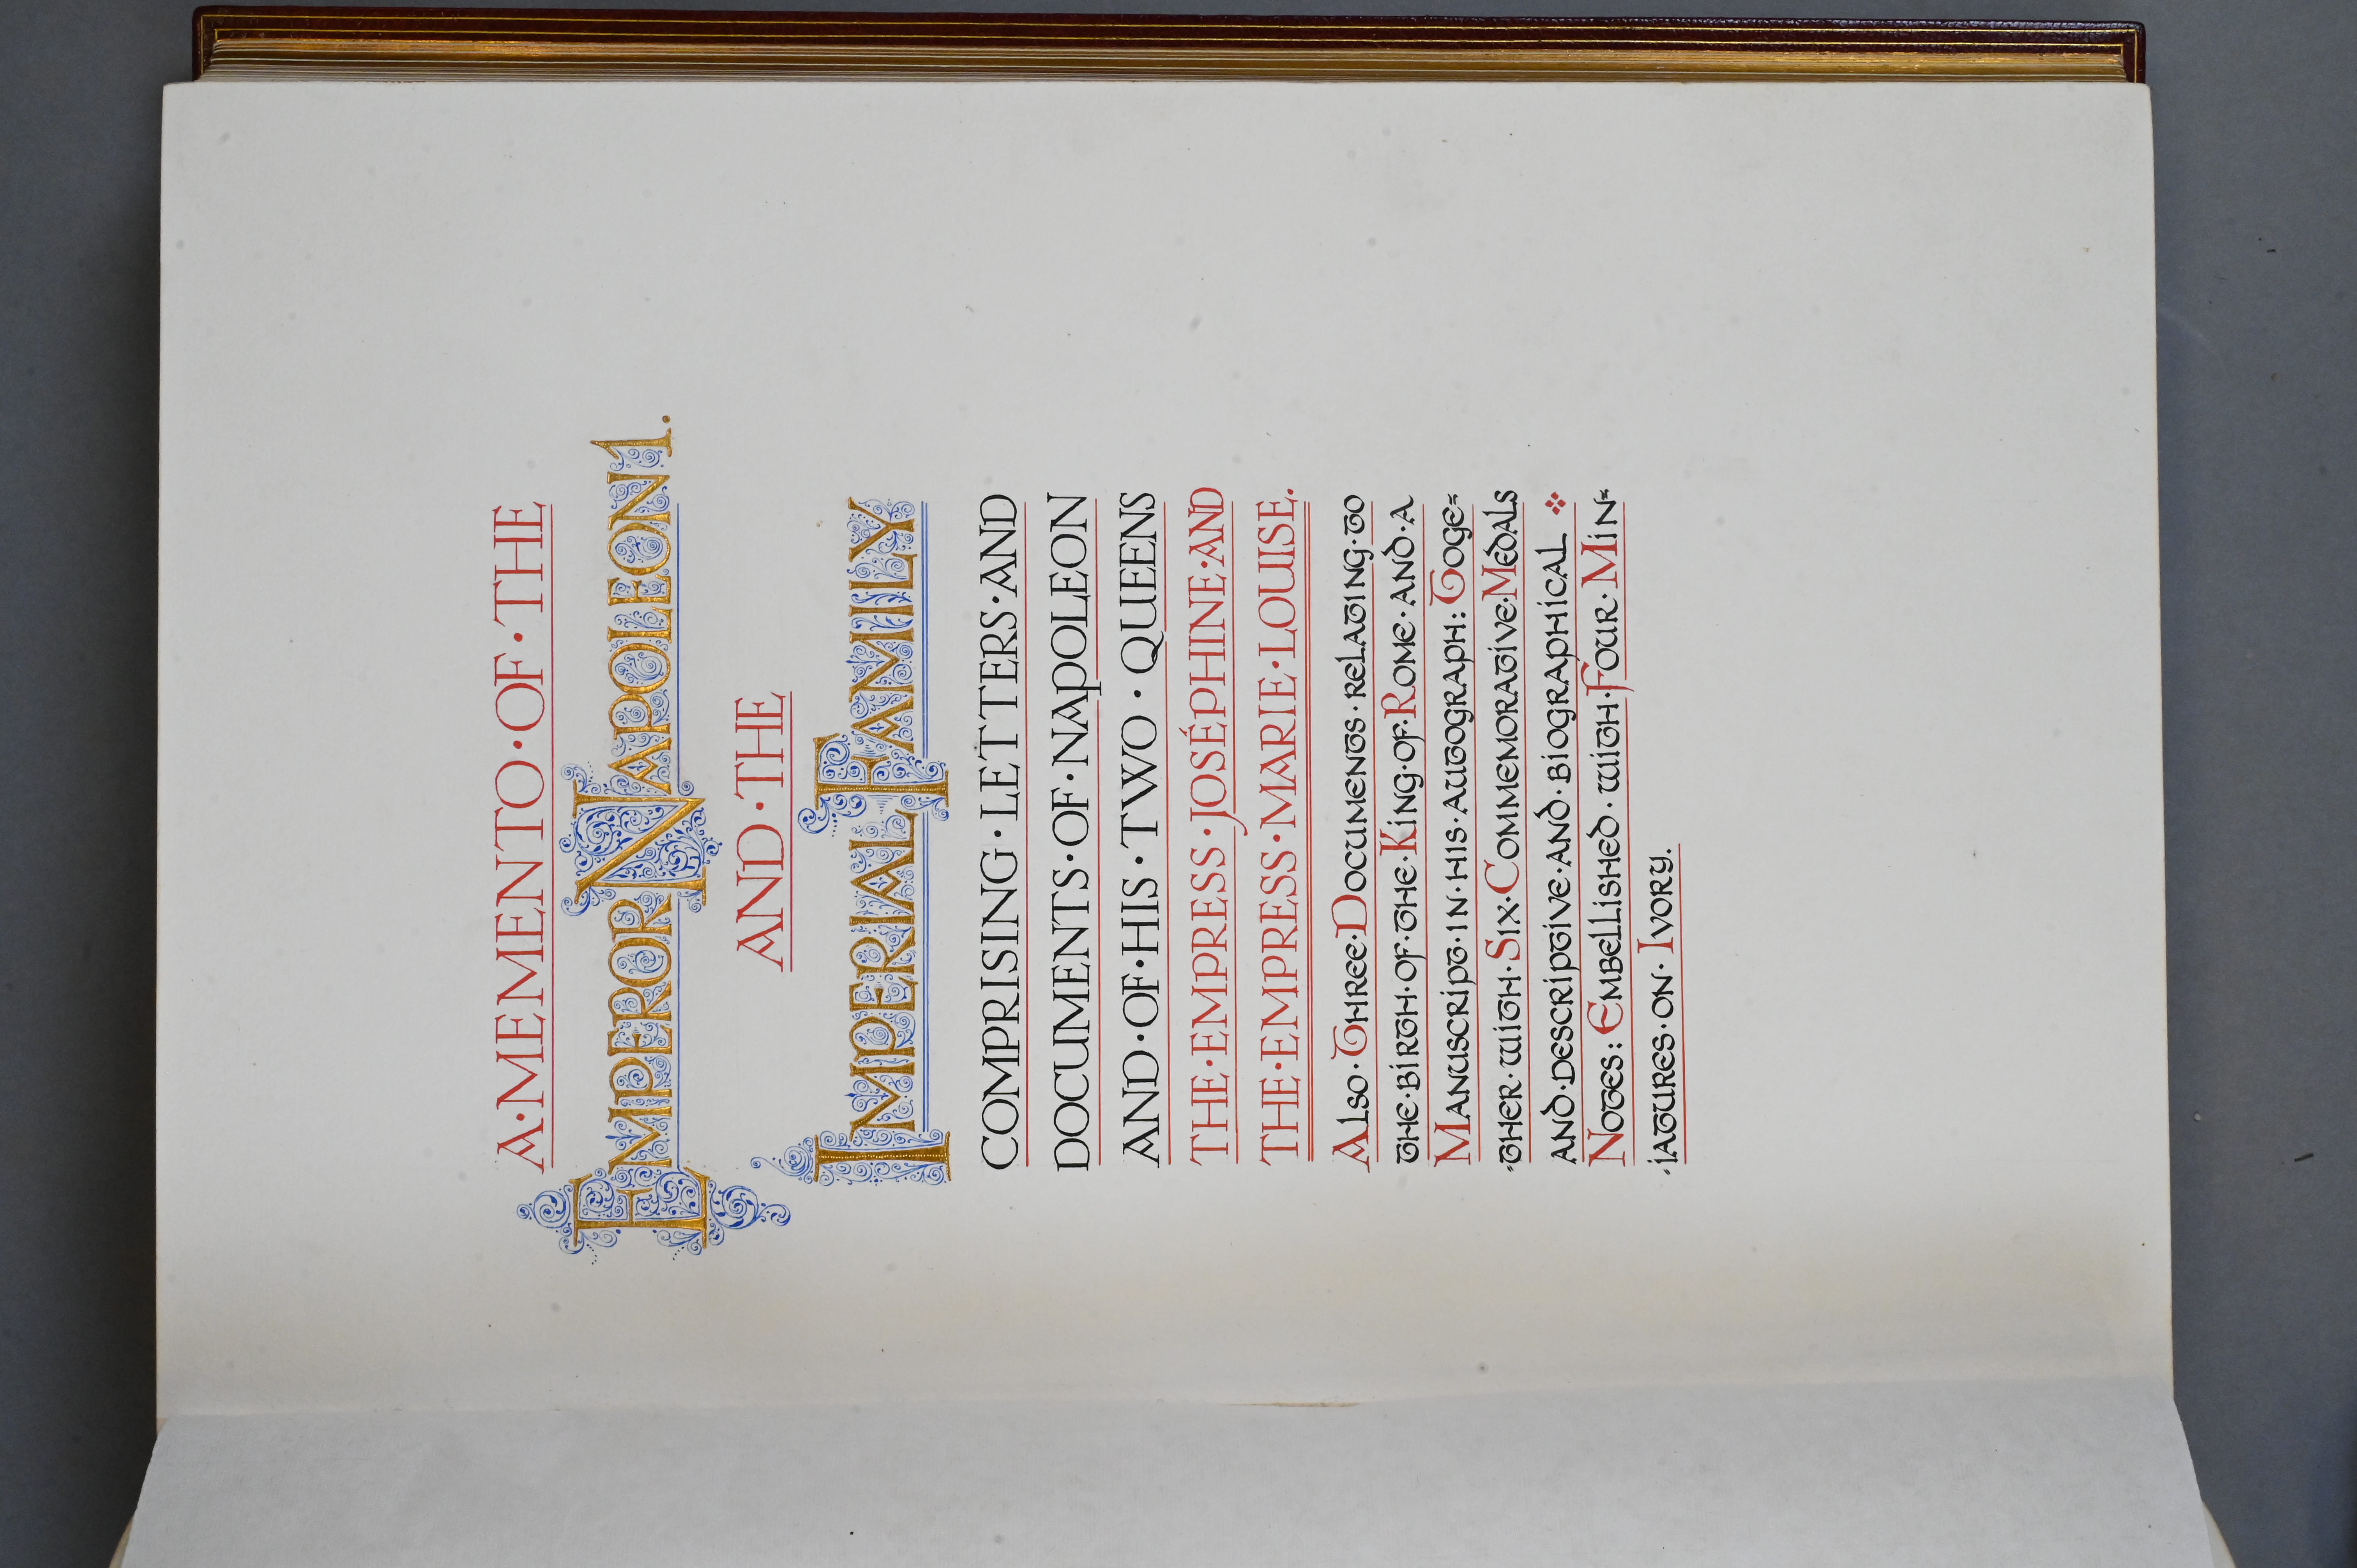 A·MEMENTO·OF·THE
EMPEROR NAPOLEON I.
AND·THE
IMPERIAL FAMILY
COMPRISING·LETTERS·AND
DOCUMENTS·OF·NAPOLEON
AND·OF·HIS·TWO·QUEENS
THE·EMPRESS·JOSÉPHINE·AND
THE·EMPRESS·MARIE·LOUISE.
Also·Three·Documents·relating·to
the·birth·of·the·King·of·Rome·and·a
Manuscript·in·his·autograph: Toge=
=ther·with·Six·Commemorative·Medals
and·descriptive·and·biographical
Notes: Embellished·with·Four·Min=
=iatures·on·Ivory.